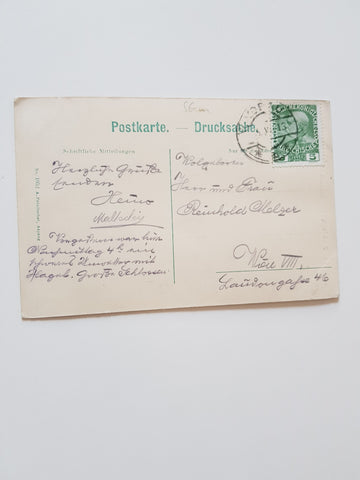 Postkarte. — Drucksache.
Schriftliche Mitteilungen
Herzliche Grüße
senden
Heino
Vorgestern war hier
Nachmittag 4h ein
schweres Unwetter mit
Hagel. Große Schlossen.
Wolgeboren
Herr und Frau
Reinhold Melzer
Wien VIII,
Laudongasse 46
5